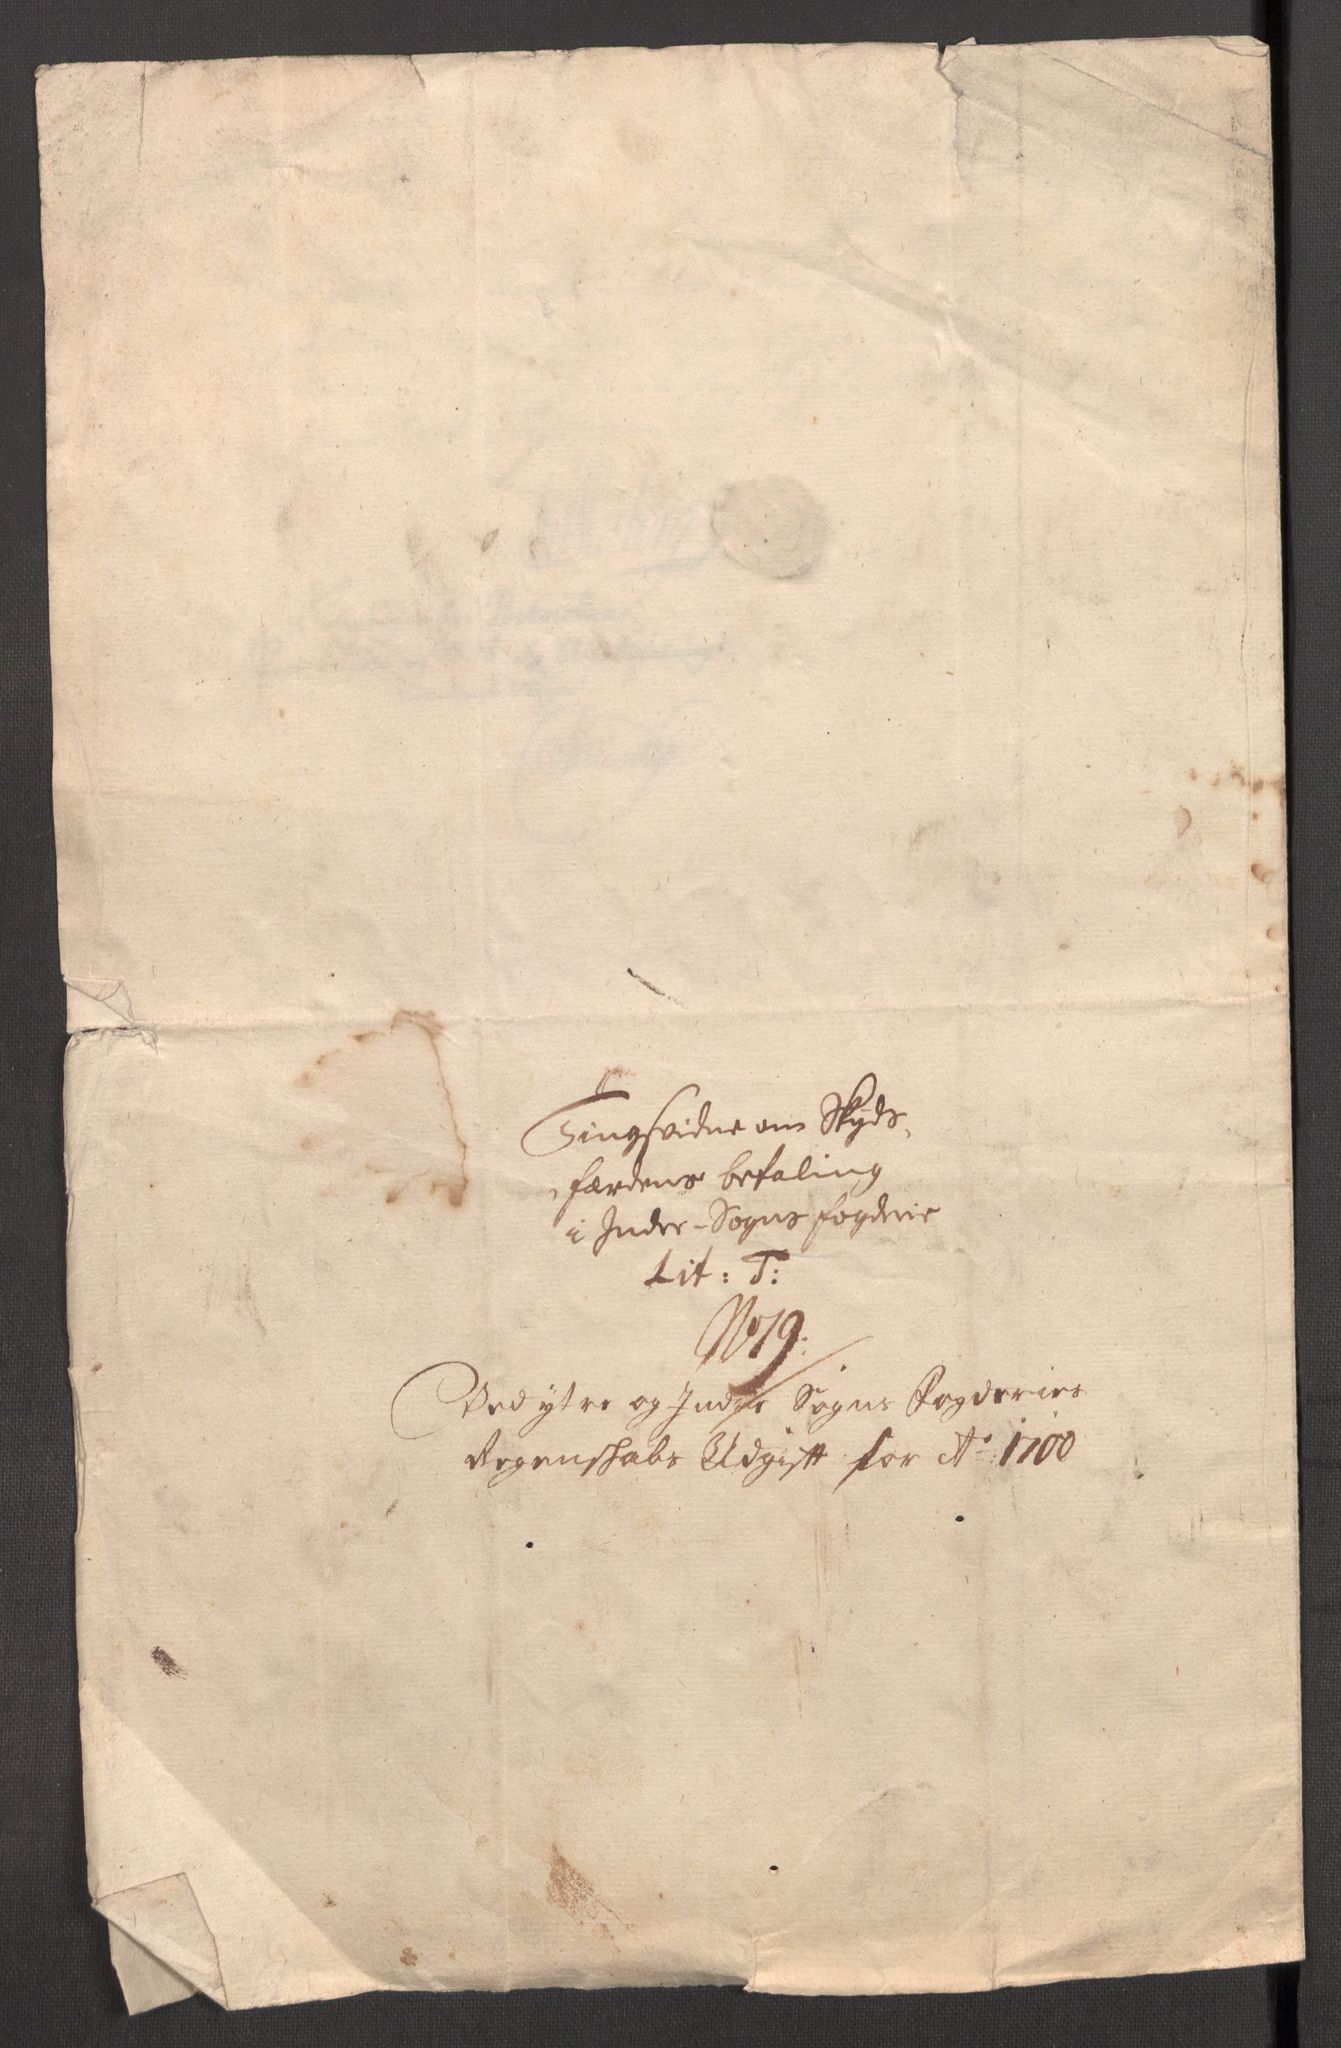 Tingsvidne om Skyds,
,færdens betaling
i Indre-Sogns fogderie
Lit: T:
No 19:
Ved ytre og Indre Sogns Fogderies
Regenskabs Udgift for Ao 1700